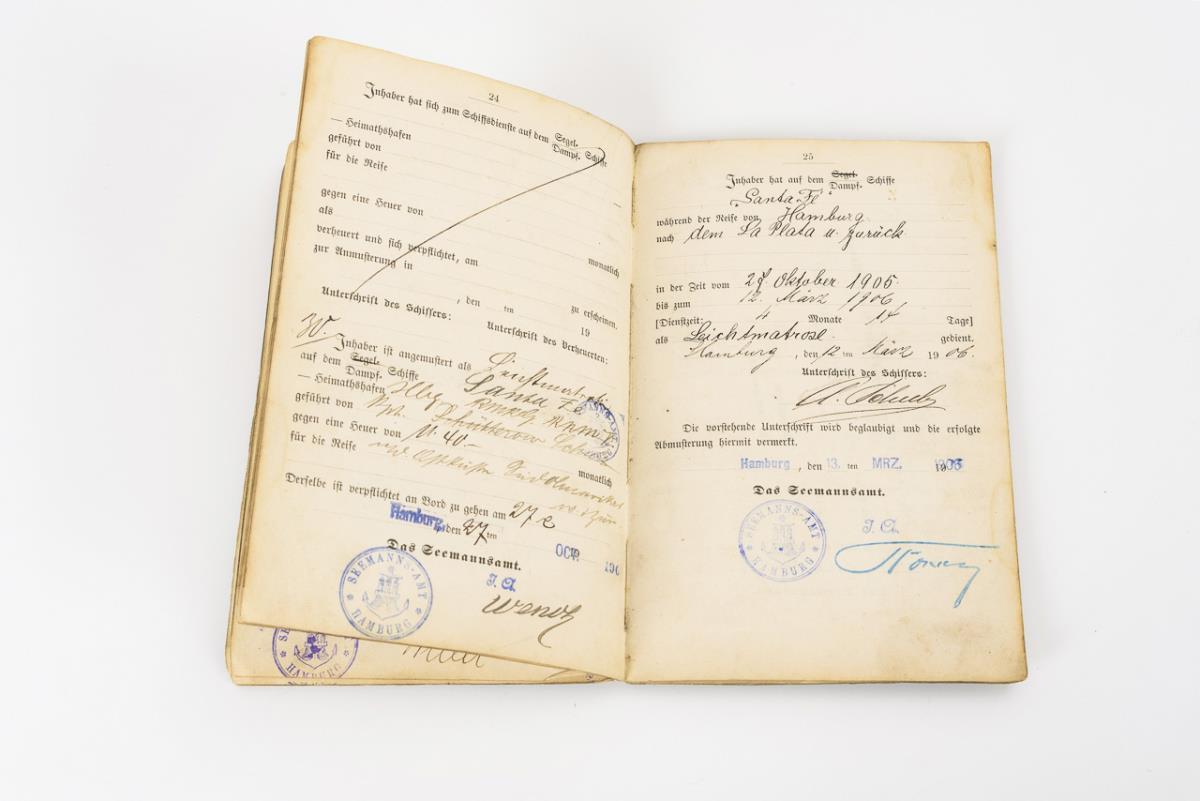 24
Inhaber hat sich zum Schiffsdienste auf dem Segel-
Dampf- Schiffe
— Heimathshafen
geführt von
für die Reise
gegen eine Heuer von
als monatlich
verheuert und sich verpflichtet, am
zur Anmusterung in zu erscheinen.
, den ten 19
Unterschrift des Schiffers: Unterschrift des Verheuerten:
30.
Inhaber ist angemustert als Leichtmatrose
auf dem Segel-
Dampf- Schiffe Santa Fé
— Heimathshafen Hbg
geführt von
gegen eine Heuer von M. 40.- monatlich
für die Reise Ostküste Südamerikas
Derselbe ist verpflichtet an Bord zu gehen am 27
Hamburg, den 27 ten OCT. 190
Das Seemannsamt.
J. A.
SEEMANNS-AMT
HAMBURG
HAMBURG
25
Inhaber hat auf dem Segel-
Dampf- Schiffe
"Santa-Fé"
während der Reise von Hamburg
nach dem La Plata u. zurück
in der Zeit vom 27 Oktober 1905.
bis zum 12. März 1906,
[Dienstzeit: 4 Monate 14 Tage]
als Leichtmatrose gedient.
Hamburg, den 12 ten März 1906.
Unterschrift des Schiffers:
Die vorstehende Unterschrift wird beglaubigt und die erfolgte
Abmusterung hiermit vermerkt.
Hamburg, den 13. ten MRZ. 1906
Das Seemannsamt.
J. A.
SEEMANNS-AMT
HAMBURG